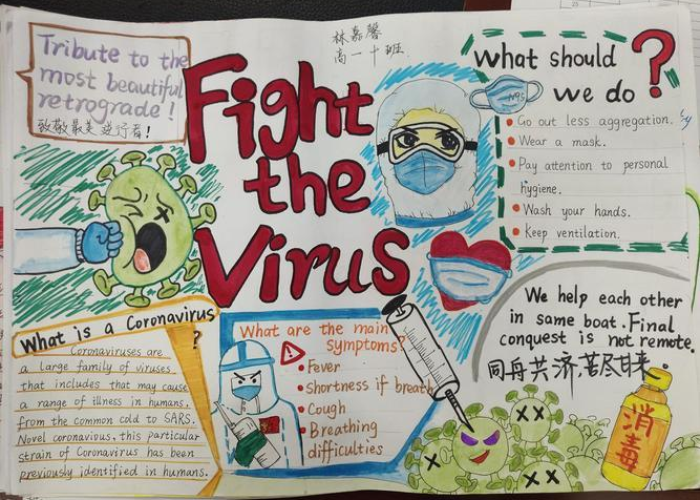 林嘉馨
高一十班
Tribute to the
most beautiful
retrograde!
致敬最美逆行者!
Fight
the
Virus
What should
we do ?
N95
Go out less aggregation.
Wear a mask.
Pay attention to personal
hygiene.
Wash your hands.
Keep ventilation.
What is a Coronavirus
?
Coronaviruses are
a large family of viruses
that includes that may cause
a range of illness in humans,
from the common cold to SARS.
Novel coronavious, this particular
strain of Coronavirus has been
previously identified in humans.
What are the main
symptoms?
!
Fever
Shortness if breath
Cough
Breathing
difficulties
We help each other
in same boat. Final
conquest is not remote.
同舟共济,苦尽甘来
消
毒